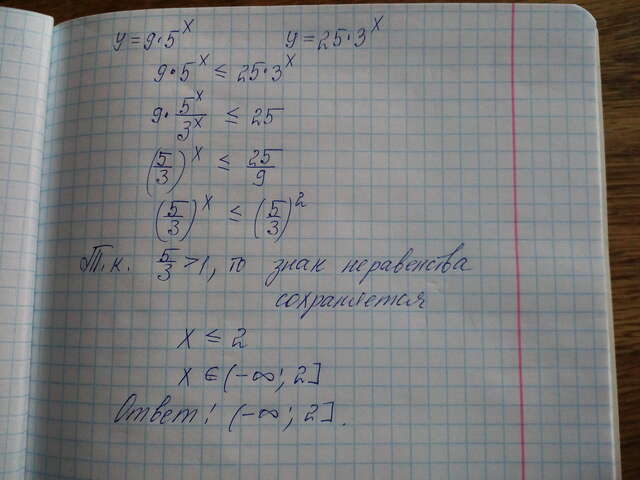 y = 9·5^x y = 25·3^x
9·5^x ≤ 25·3^x
9· 5^x/3^x ≤ 25
(5/3)^x ≤ 25/9
(5/3)^x ≤ (5/3)^2
Т.к. 5/3 > 1, то знак неравенства
сохраняется
x ≤ 2
x ∈ (-∞; 2]
Ответ: (-∞; 2].